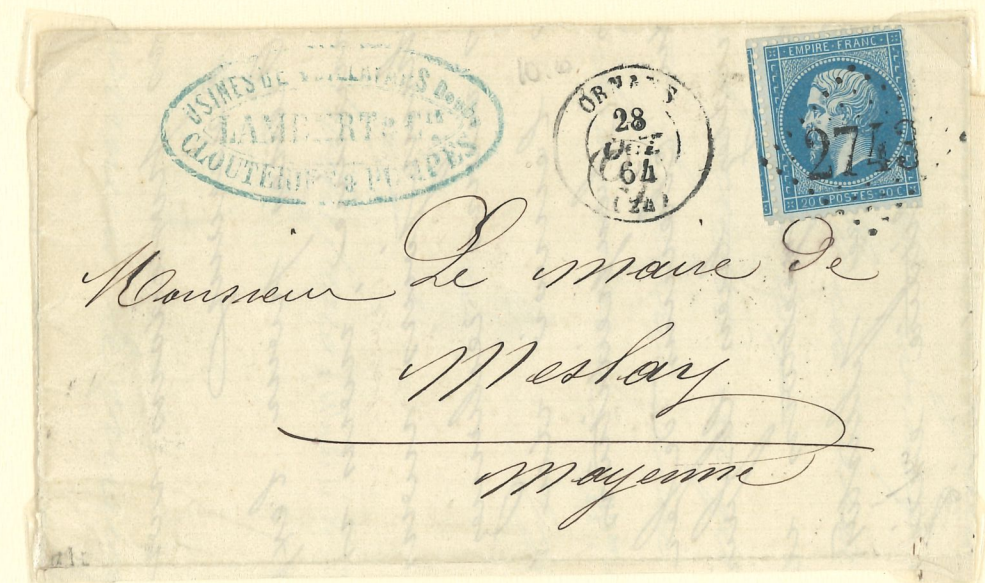 USINES DE Doubs
LAMBERT & Cie
CLOUTERIES & POMPES
ORNANS
28
OCT.
64
(24)
EMPIRE FRANC
2743
20 C POSTES 20 C
Monsieur Le Maire De
Meslay
Mayenne